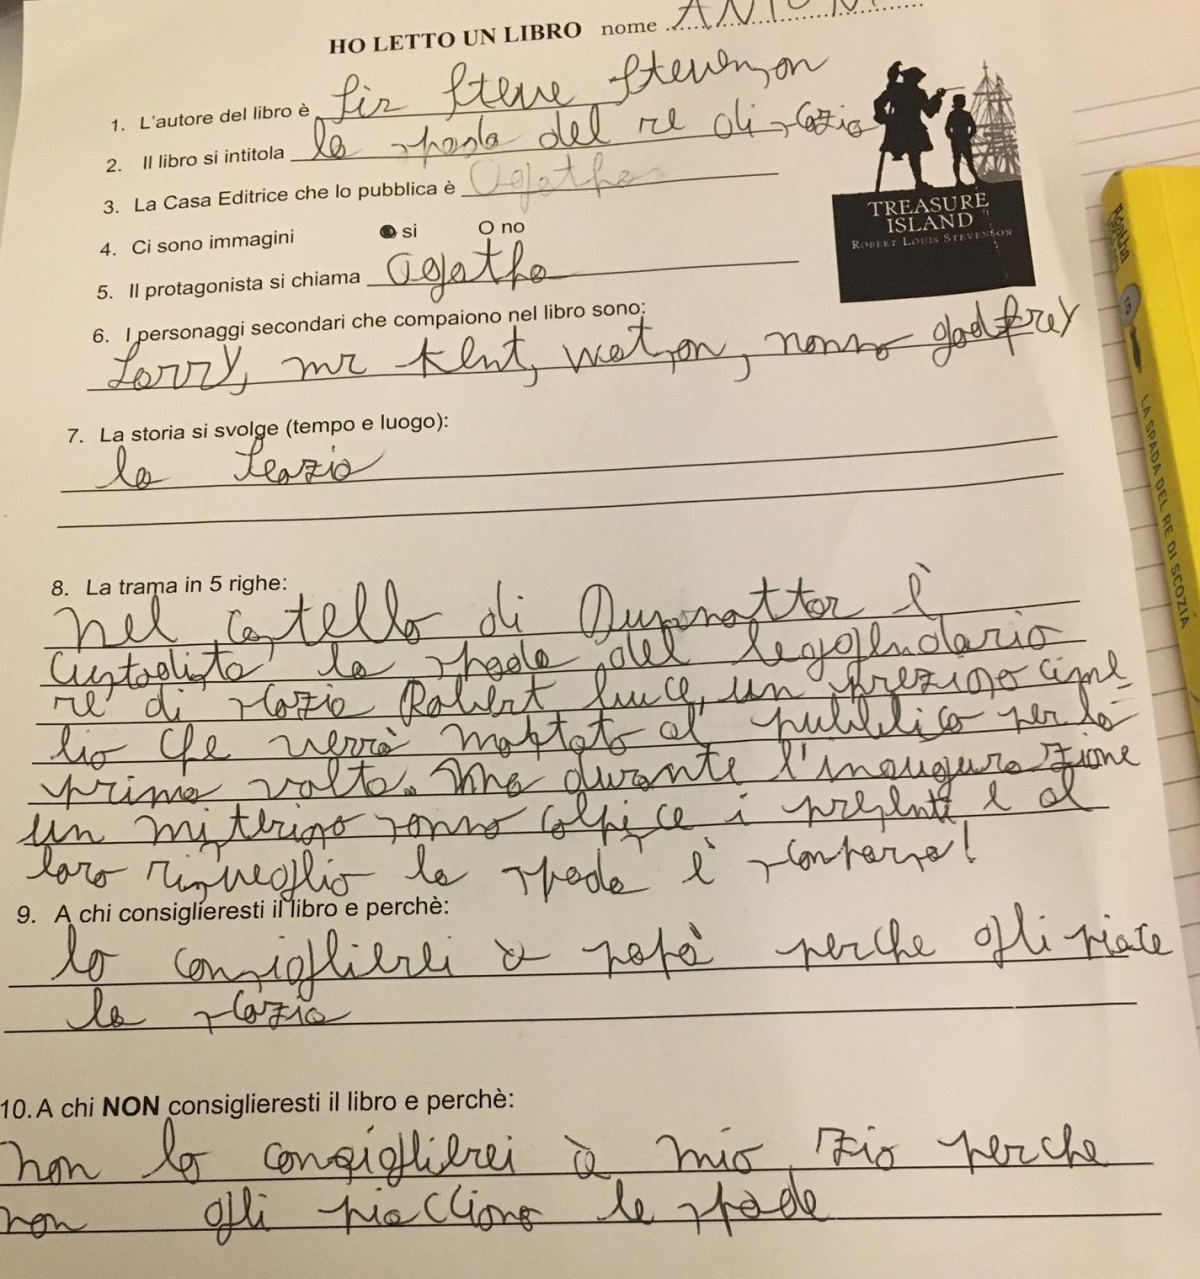 HO LETTO UN LIBRO nome
1. L'autore del libro è Sir Steve Stevenson
2. Il libro si intitola la spada del re di scozia
3. La Casa Editrice che lo pubblica è Agatha
4. Ci sono immagini si O no
5. Il protagonista si chiama Agatha
6. I personaggi secondari che compaiono nel libro sono:
Larry, mr Kent, watson, nonno godfrey
7. La storia si svolge (tempo e luogo):
la Scozia
8. La trama in 5 righe:
Nel castello di Dunnottor è
custodita la spada del leggendario
re di scozia Robert Bruce, un prezioso cime
lio che verrà mostrato al pubblico per la
prima volta. Ma durante l'inaugurazione
un misterioso sonno colpisce i presenti e al
loro risveglio la spada è scomparsa!
9. A chi consiglieresti il libro e perchè:
lo consiglierei à papà perche gli piace
la scozia
10. A chi NON consiglieresti il libro e perchè:
non lo consiglierei à mio zio perche
non gli piacciono le spade
TREASURE
ISLAND
ROBERT LOUIS STEVENSON
Agatha
LA SPADA DEL RE DI SCOZIA